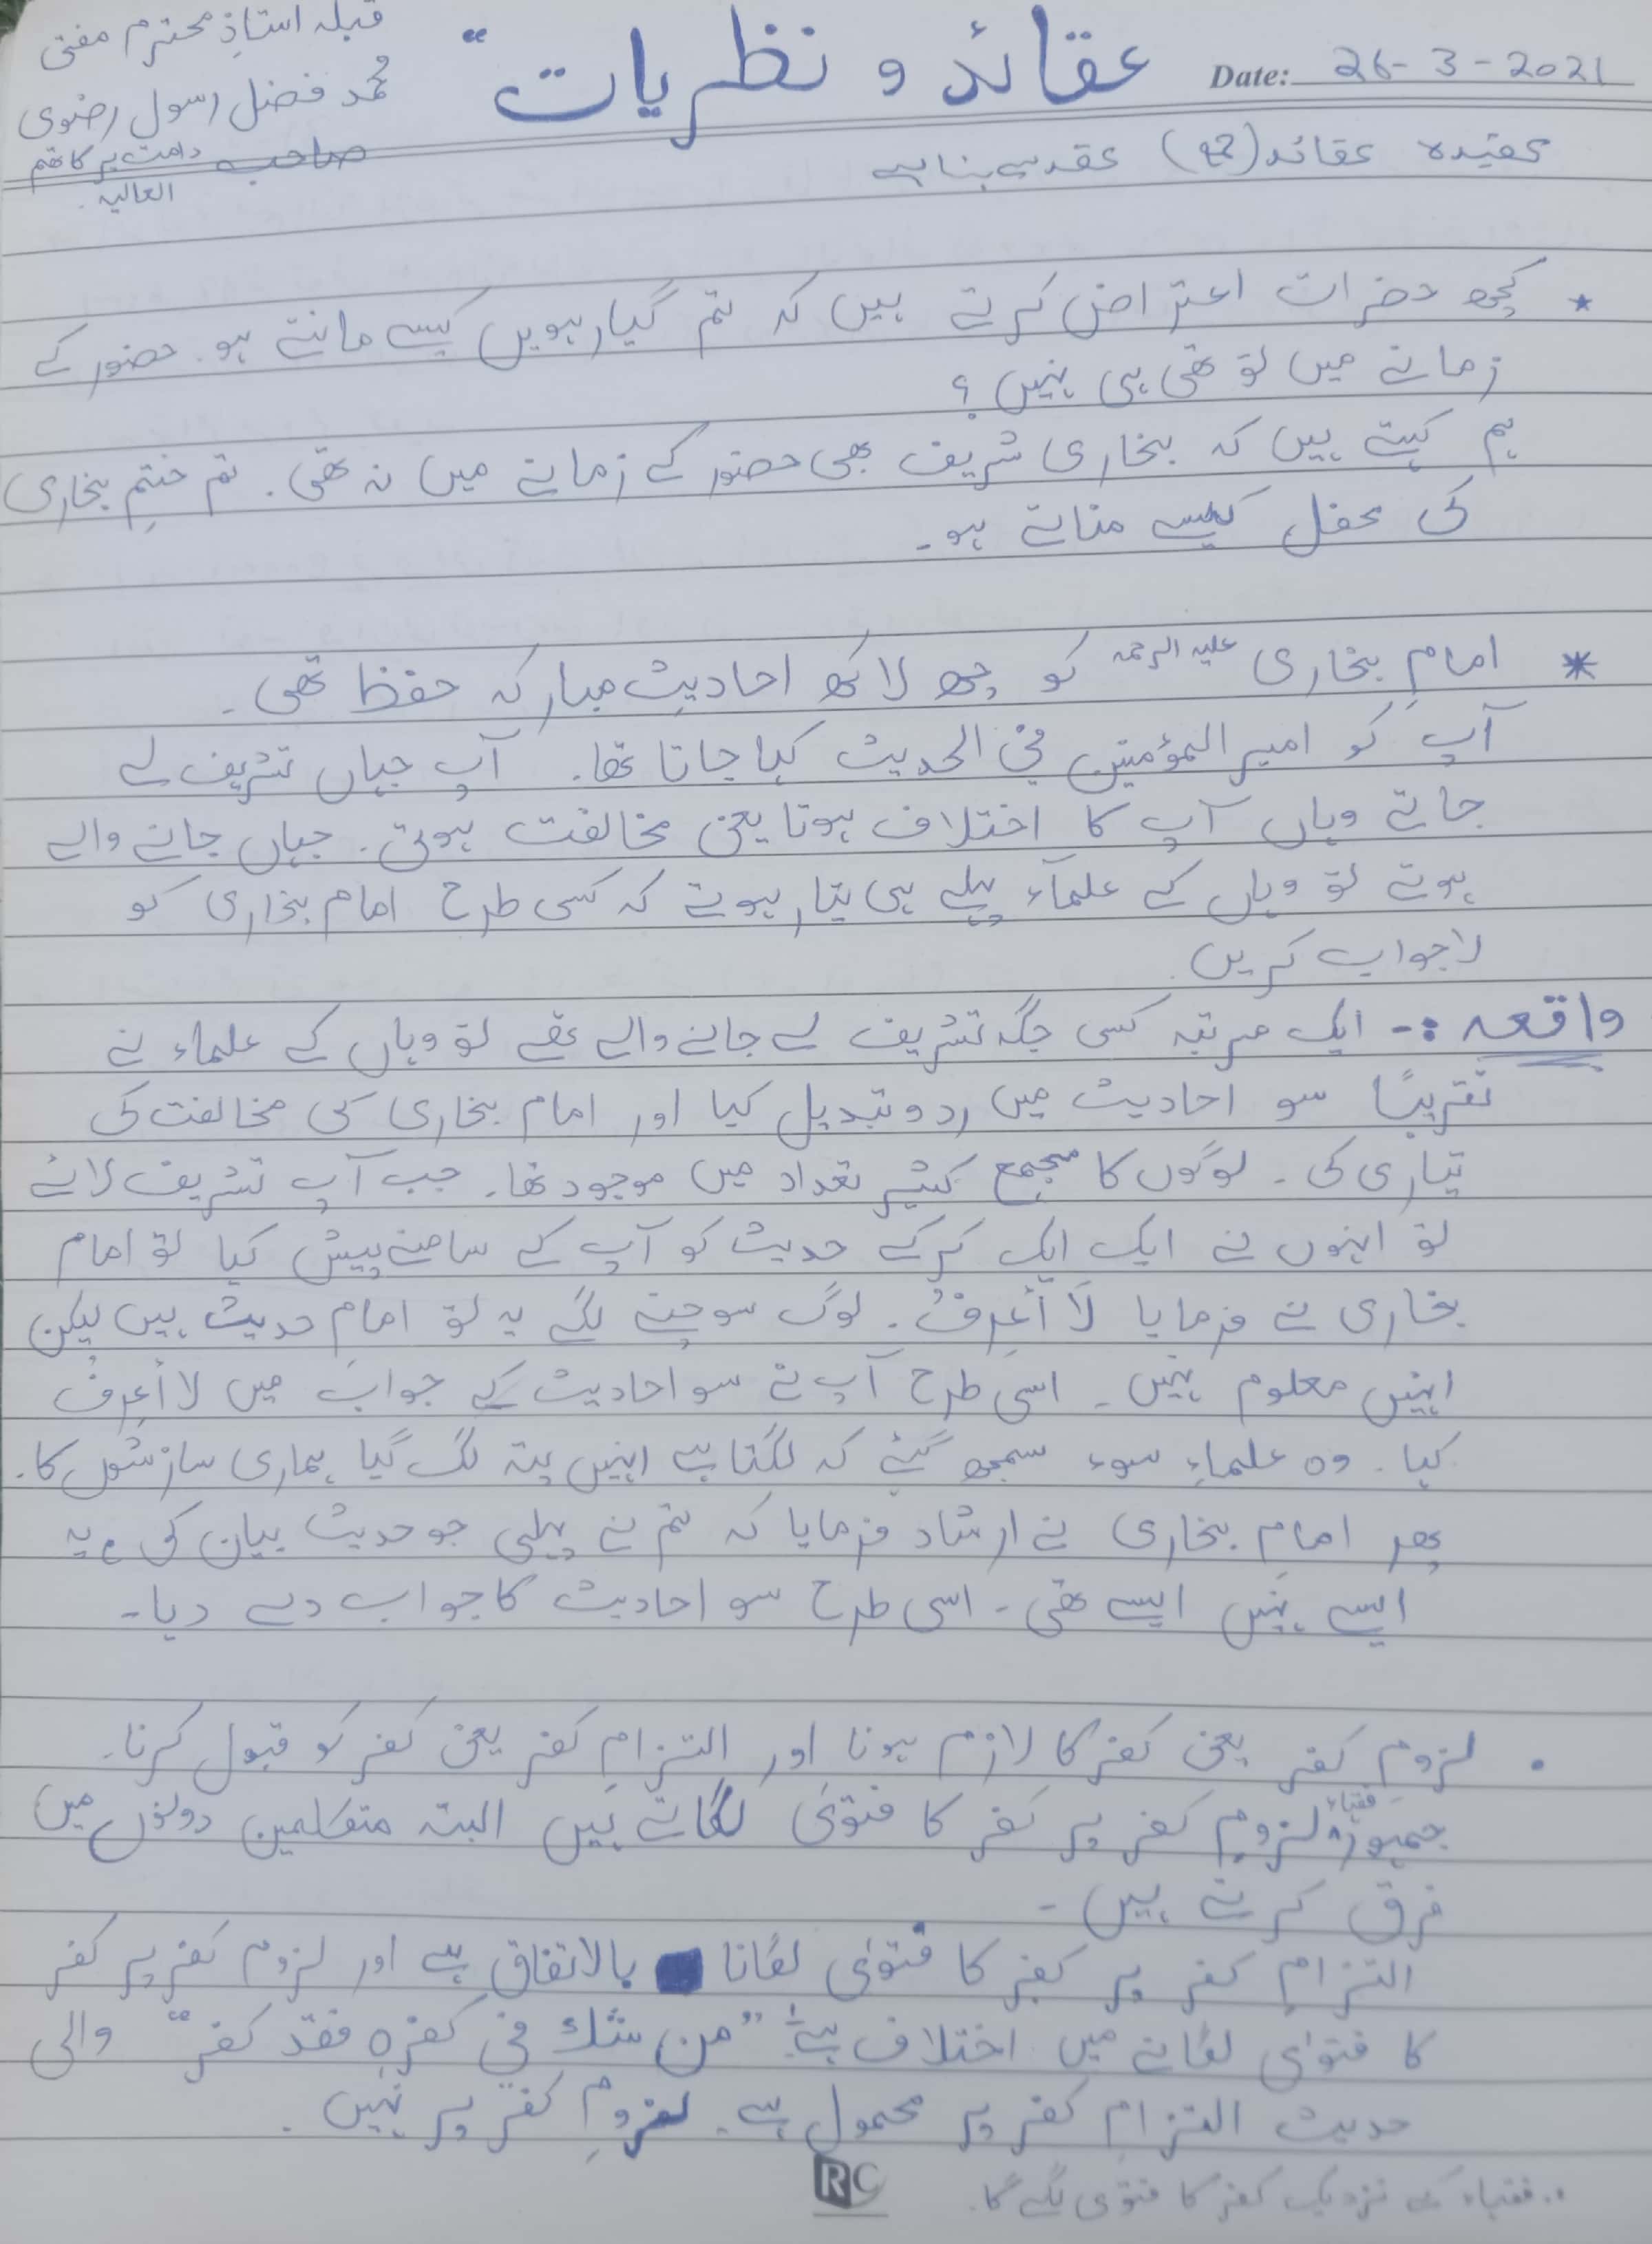 Date: 26-3-2021
عقائد و نظریات"
قبلہ استاذِ محترم مفتی
محمد فضل رسول رضوی
صاحب دامت برکاتھم
العالیہ
عقیدہ عقائد عقد سے بنا ہے
* کچھ حضرات اعتراض کرتے ہیں کہ تم گیارہویں کیسے مانتے ہو۔ حضور کے
زمانے میں تو تھی ہی نہیں؟
ہم کہتے ہیں کہ بخاری شریف بھی حضور کے زمانے میں نہ تھی۔ تم ختمِ بخاری
کی محفل کیسے مناتے ہو۔
* امامِ بخاری علیہ الرحمہ کو چھ لاکھ احادیثِ مبارکہ حفظ تھی۔
آپ کو امیر المؤمنین فی الحدیث کہا جاتا تھا۔ آپ جہاں تشریف لے
جاتے وہاں آپ کا اختلاف ہوتا یعنی مخالفت ہوتی۔ جہاں جانے والے
ہوتے تو وہاں کے علمآء پہلے ہی تیار ہوتے کہ کسی طرح امام بخاری کو
لاجواب کریں۔
واقعہ :- ایک مرتبہ کسی جگہ تشریف لے جانے والے تھے تو وہاں کے علماء نے
تقریباً سو احادیث میں ردوتبدیل کیا اور امام بخاری کی مخالفت کی
تیاری کی۔ لوگوں کا مجمع کثیر تعداد میں موجود تھا۔ جب آپ تشریف لائے
تو انہوں نے ایک ایک کرکے حدیث کو آپ کے سامنے پیش کیا تو امام
بخاری نے فرمایا لَا أَعرِفُ۔ لوگ سوچنے لگے یہ تو امامِ حدیث ہیں لیکن
انہیں معلوم نہیں۔ اسی طرح آپ نے سو احادیث کے جواب میں لا أعرِفُ
کہا۔ وہ علماءِ سوء سمجھ گئے کہ لگتا ہے انہیں پتہ لگ گیا ہماری سازشوں کا۔
پھر امام بخاری نے ارشاد فرمایا کہ تم نے پہلی جو حدیث بیان کی، یہ
ایسے نہیں ایسے تھی۔ اسی طرح سو احادیث کا جواب دے دیا۔
• لزومِ کفر یعنی کفر کا لازم ہونا اور التزامِ کفر یعنی کفر کو قبول کرنا۔
جمہور فقہاء لزومِ کفر پر کفر کا فتویٰ لگاتے ہیں البتہ متکلمین دونوں میں
فرق کرتے ہیں۔
التزامِ کفر پر کفر کا فتویٰ لگانا بالاتفاق ہے اور لزوم کفر پر کفر
کا فتویٰ لگانے میں اختلاف ہے۔ "من شك في كفره فقد كفر" والی
حدیث التزامِ کفر پر محمول ہے۔ لزومِ کفر پر نہیں۔
RC
فقہاء کے نزدیک کفر کا فتویٰ لگے گا۔